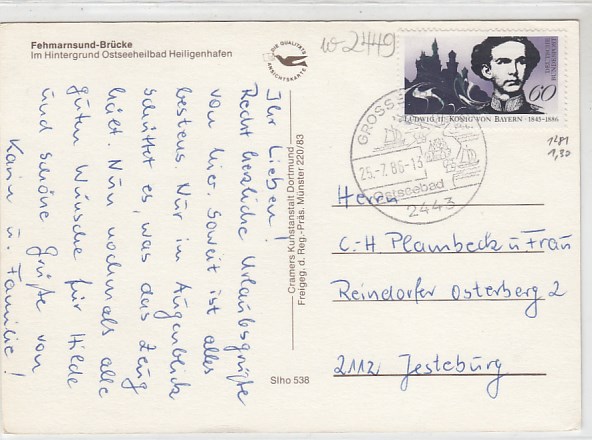 Fehmarnsund-Brücke
Im Hintergrund Ostseeheilbad Heiligenhafen
DIE QUALITÄTS
ANSICHTSKARTE
w-2449
DEUTSCHE BUNDESPOST
60
LUDWIG II. · KÖNIG VON BAYERN · 1845-1886
GROSS
25.-7.86-13
Ostseebad
2443
1281
1,30
Ihr Lieben!
Recht herzliche Urlaubsgrüße
von hier. Soweit ist alles
bestens. Nur im Augenblick
schüttet es, was das Zeug
hält. Nun nochmals alle
guten Wünsche für Hilde
und schöne Grüße von
Karin u. Familie!
Cramers Kunstanstalt Dortmund
Freigeg. d. Reg.-Präs. Münster 220/83
Slho 538
Herrn
C.-H. Plambeck u. Frau
Reindorfer Osterberg 2
2112 Jesteburg